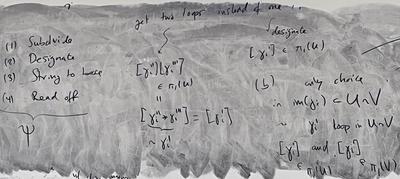 get two loops instead of one
(1) Subdivide
(2) Designate
(3) String to base
(4) Read off
Ψ
[γ_i''][γ_i''']
∈ π_1(U)
||
[γ_i'' * γ_i'''] = [γ_i']
~ γ_i'
designate
[γ_i'] ∈ π_1(U)
(b) only choice
in im(γ_i) ⊂ U∩V
~ γ_i' loop in U∩V
[γ_i'] and [γ_i']
∈ π_1(U) ∈ π_1(V)